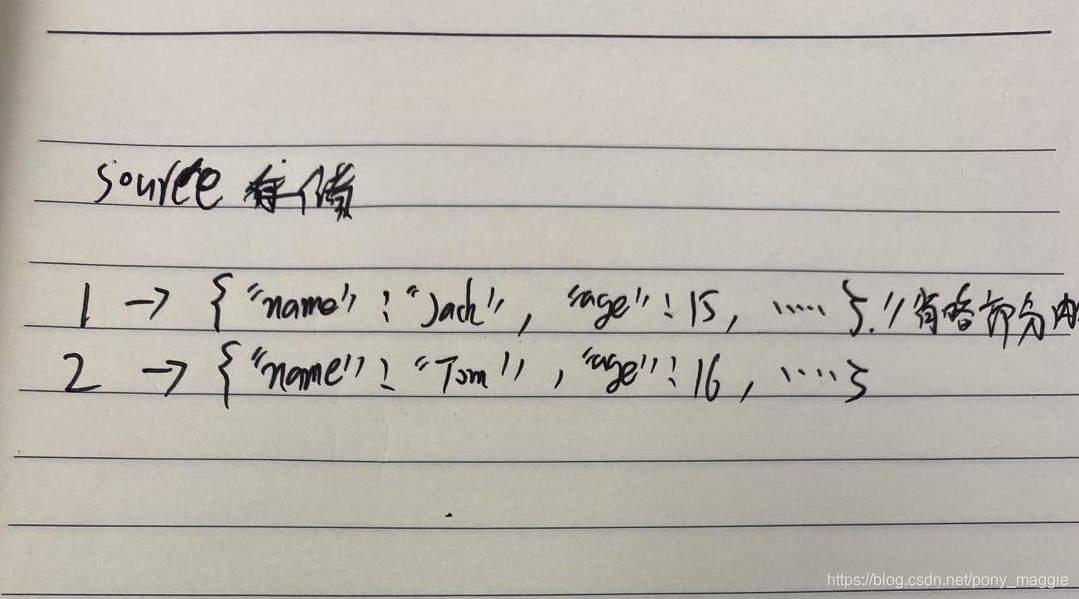 source 存储
1 → { "name" : "Jack", "age" : 15, ..... }. // 省略部分内
2 → { "name" : "Tom" , "age" : 16 , ..... }
https://blog.csdn.net/pony_maggie